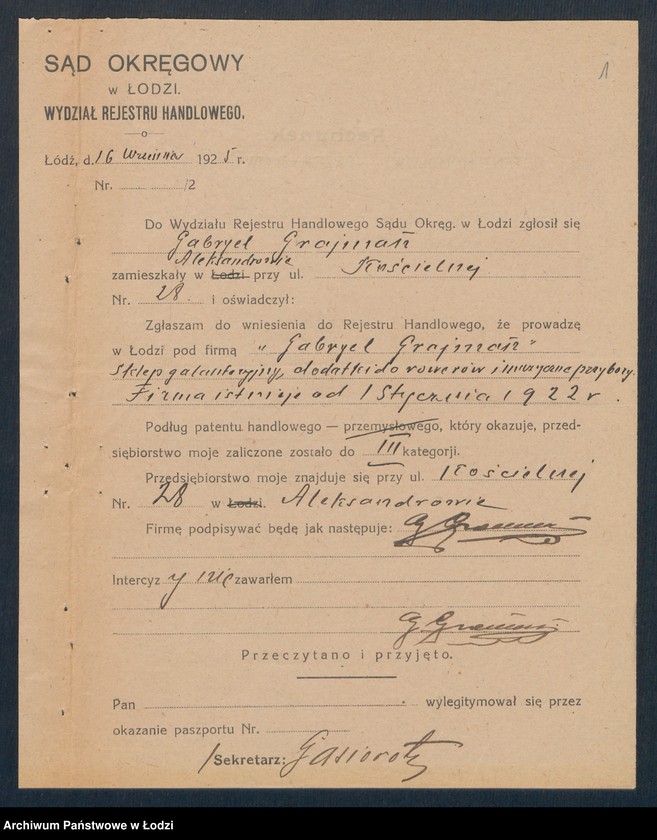 1
SĄD OKRĘGOWY
w ŁODZI.
WYDZIAŁ REJESTRU HANDLOWEGO.
Łódź, d. 16 września 1925 r.
Nr. /2
Do Wydziału Rejestru Handlowego Sądu Okręg. w Łodzi zgłosił się
Gabryel Grajmań
Aleksandrowie
zamieszkały w Łodzi przy ul. Kościelnej
Nr. 28 i oświadczył:
Zgłaszam do wniesienia do Rejestru Handlowego, że prowadzę
w Łodzi pod firmą „Gabryel Grajmań"
Sklep galanteryjny, dodatki do rowerów i muzyczne przybory.
Firma istnieje od 1 Stycznia 1922 r.
Podług patentu handlowego — przemysłowego, który okazuje, przed-
siębiorstwo moje zaliczone zostało do III kategorji.
Przedsiębiorstwo moje znajduje się przy ul. Kościelnej
Nr. 28 w Łodzi. Aleksandrowie
Firmę podpisywać będę jak następuje: G.
Intercyzy nie zawarłem
G.
Przeczytano i przyjęto.
Pan wylegitymował się przez
okazanie paszportu Nr.
/Sekretarz:
Archiwum Państwowe w Łodzi